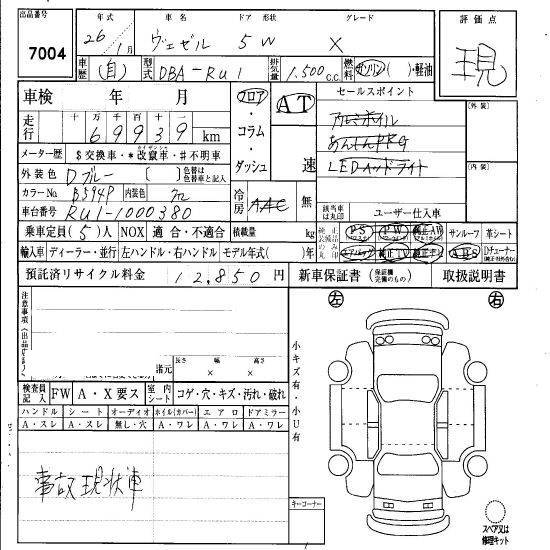 出品番号 年式 車名 ドア 形状 グレード 評価点
7004 26年 1月 ヴェゼル 5W X 現
車歴 (自) 型式 DBA-RU1 排気量 1,500c.c. 燃料 ガソリン( )・軽油
車検 年 月 フロア・コラム・ダッシュ AT 速 セールスポイント 〔外装〕
走行 十万 万 千 百 十 一 アルミホイル
69939 km あんしんPKG
メーター歴 $交換車・*改竄車・#不明車 LEDヘッドライト 〔内装〕
外装色 Dブルー 〔 〕 色替は色替車と記入
カラーNo B594P 内装色 クロ 冷房 AAC 無 該当車は丸印 ユーザー仕入車
車台番号 RU1-1000380
乗車定員(5)人 NOX 適合・不適合 積載量 kg 純正装備品のみ丸印 PS PW 純正AW サンルーフ 革シート
輸入車 ディーラー・並行 左ハンドル・右ハンドル モデル年式( )年 エアバッグ 純正TV 純正ナビ ABS Dチューナー
預託済リサイクル料金 12,850円 新車保証書 (保証継完備のもの) 取扱説明書
左 右
注意事項
諸元 長さ 幅 高さ
× ×
小キズ有・小U有
検査員記入 FW A・X要ス 室内シート コゲ・穴・キズ・汚れ・破れ
ハンドル シート オーディオ ホイル(カバー) エアロ ドアミラー
A・スレ A・スレ 無し・穴 A・ワレ A・ワレ A・ワレ
事故現状車
キーコーナー
スペア又は修理キット